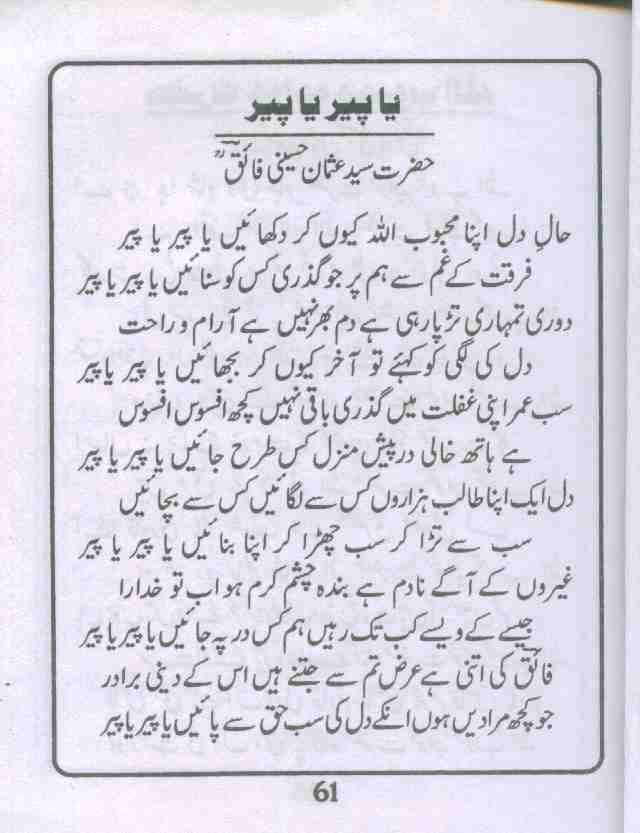 یا پیر یا پیر
حضرت سید عثمان حسینی فائقؔ ؒ
حالِ دل اپنا محبوب اللہ کیوں کر دکھائیں یا پیر یا پیر
فرقت کے غم سے ہم پر جو گذری کس کو سنائیں یا پیر یا پیر
دوری تمہاری تڑپا رہی ہے دم بھر نہیں ہے آرام و راحت
دل کی لگی کو کہئے تو آخر کیوں کر بجھائیں یا پیر یا پیر
سب عمر اپنی غفلت میں گذری باقی نہیں کچھ افسوس افسوس
ہے ہاتھ خالی درپیش منزل کس طرح جائیں یا پیر یا پیر
دل ایک اپنا طالب ہزاروں کس سے لگائیں کس سے بچائیں
سب سے تڑا کر سب چھڑا کر اپنا بنائیں یا پیر یا پیر
غیروں کے آگے نادم ہے بندہ چشم کرم ہو اب تو خدارا
جیسے کے ویسے کب تک رہیں ہم کس در پہ جائیں یا پیر یا پیر
فائقؔ کی اتنی ہے عرض تم سے جتنے ہیں اس کے دینی برادر
جو کچھ مرادیں ہوں انکے دل کی سب حق سے پائیں یا پیر یا پیر
61